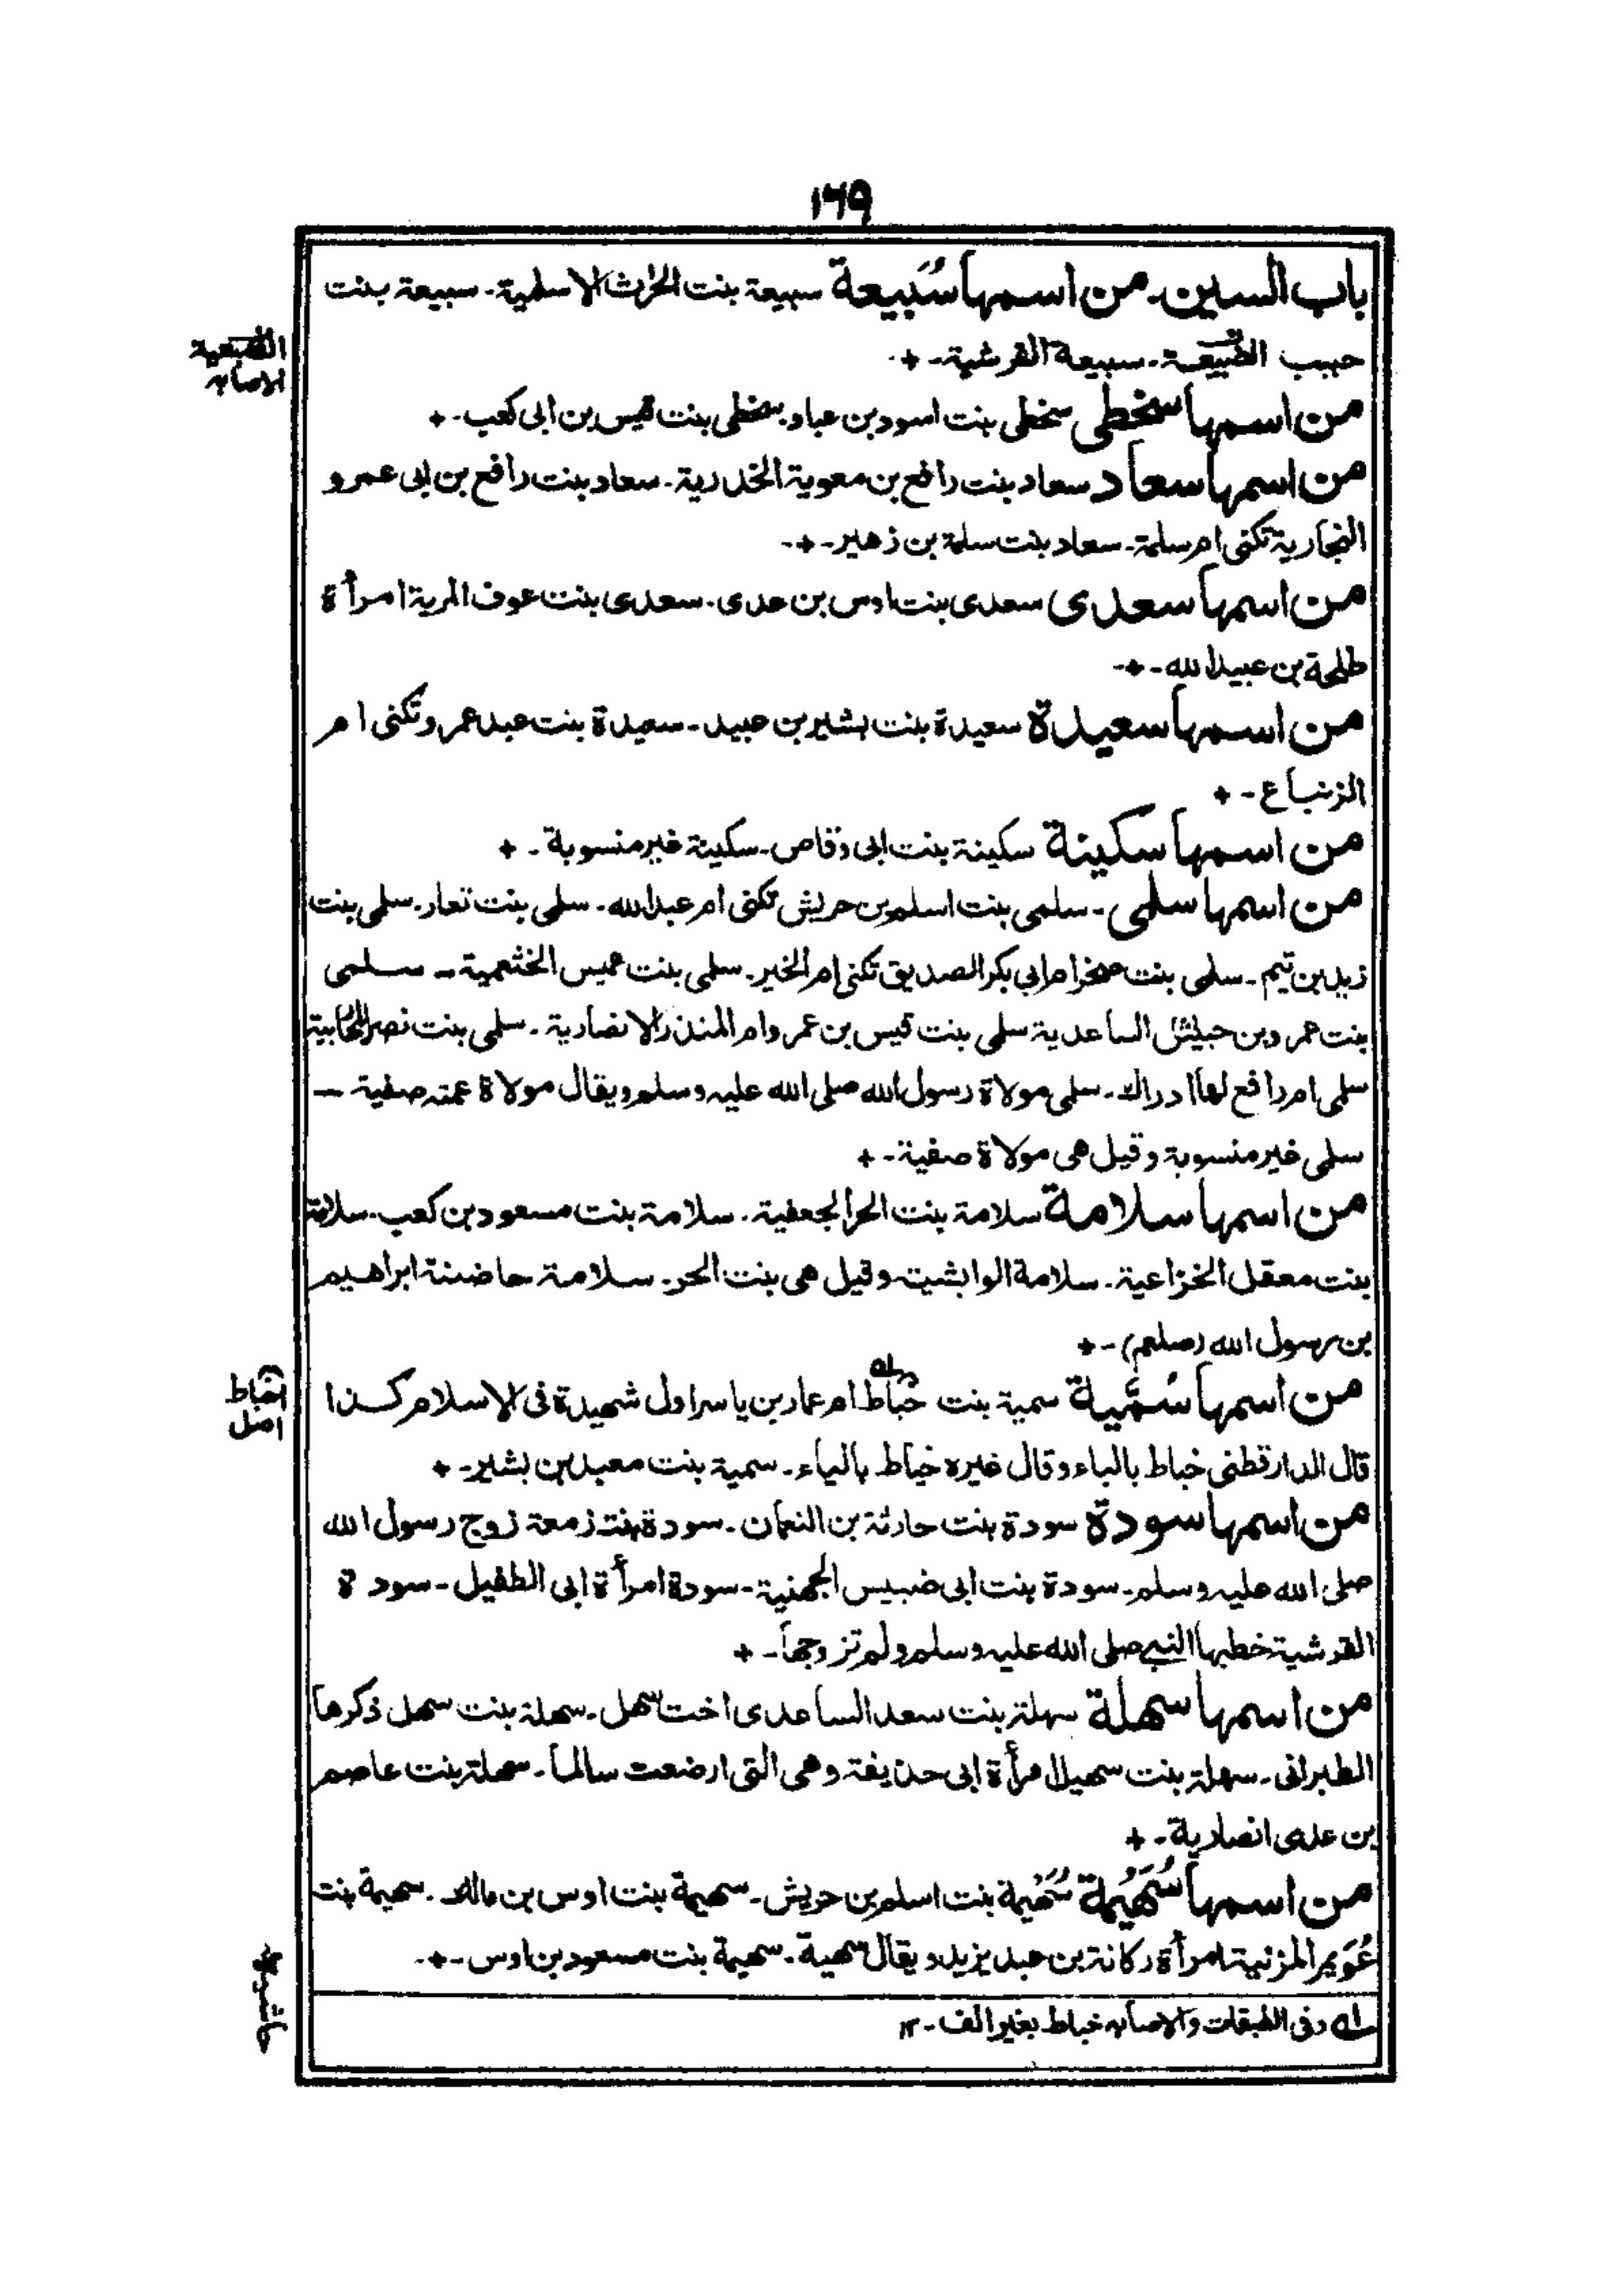 ١٦٩
باب السين۔ من اسمها سُبَيعة سبيعة بنت الحٰرث الاسلمية۔ سبيعة بنت
حبيب الضّبيعية۔ سبيعة القرشية۔ +
الضبعية
الاصابه
من اسمها سخطى سخطى بنت اسود بن عباد۔ سخطى بنت قيس بن ابى كعب۔ +
من اسمها سعاد سعاد بنت رافع بن معوية الخدرية۔ سعاد بنت رافع بن ابى عمرو
النجارية تكنى ام سلمة۔ سعاد بنت سلمة بن زهير۔ +
من اسمها سعدى سعدى بنت اوس بن عدى۔ سعدى بنت عوف المرية امرأة
طلحة بن عبيد الله۔ +
من اسمها سعيدة سعيدة بنت بشير بن عبيد۔ سعيدة بنت عبد عمر وتكنى ام
الزنباع۔ +
من اسمها سكينة سكينة بنت ابى وقاص۔ سكينة غير منسوبة۔ +
من اسمها سلمى۔ سلمى بنت اسلم بن حريش تكنى ام عبد الله۔ سلمى بنت تعار۔ سلمى بنت
زيد بن تيم۔ سلمى بنت صخر ام ابي بكر الصديق تكنى ام الخير۔ سلمى بنت عميس الخثعمية۔ سلمى
بنت عمرو بن حبيش الساعدية سلمى بنت قيس بن عمرو ام المنذر الانصارية۔ سلمى بنت نصر المحاربية
سلمى ام رافع لها ادراك۔ سلمى مولاة رسول الله صلى الله عليه وسلم ويقال مولاة عمته صفية۔
سلمى غير منسوبة وقيل هى مولاة صفية۔ +
من اسمها سلامة سلامة بنت الحر الجعفية۔ سلامة بنت مسعود بن كعب۔ سلامة
بنت معقل الخزاعية۔ سلامة الوابشية وقيل هى بنت الحر۔ سلامة حاضنة ابراهيم
بن رسول الله (صلعم)۔ +
من اسمها سُمَيّة سمية بنت خباط ام عمار بن ياسر اول شهيدة فى الاسلام كذا
قال الدارقطنى خباط بالباء وقال غيره خياط بالياء۔ سمية بنت معبد بن بشير۔ +
من اسمها سودة سودة بنت حارثة بن النعمان۔ سودة بنت زمعة زوج رسول الله
صلى الله عليه وسلم۔ سودة بنت ابى ضبيس الجهنية۔ سودة امرأة ابى الطفيل۔ سودة
القرشية خطبها النبي صلى الله عليه وسلم ولم تزوجها۔ +
من اسمها سهلة سهلة بنت سعد الساعدى اخت سهل۔ سهلة بنت سهل ذكرها
الطبرانى۔ سهلة بنت سهيل امرأة ابى حذيفة وهى التى ارضعت سالما۔ سهلة بنت عاصم
بن عدى انصارية۔ +
من اسمها سُهَيْمة سُهَيْمة بنت اسلم بن حريش۔ سهيمة بنت اوس بن مالك۔ سهيمة بنت
عُوَيمر المزنية امرأة ركانة بن عبد يزيد ويقال سهية۔ سهيمة بنت مسعود بن اوس۔ +
له وفى الطبقات والاصابه خباط بغير الف۔ ١٢